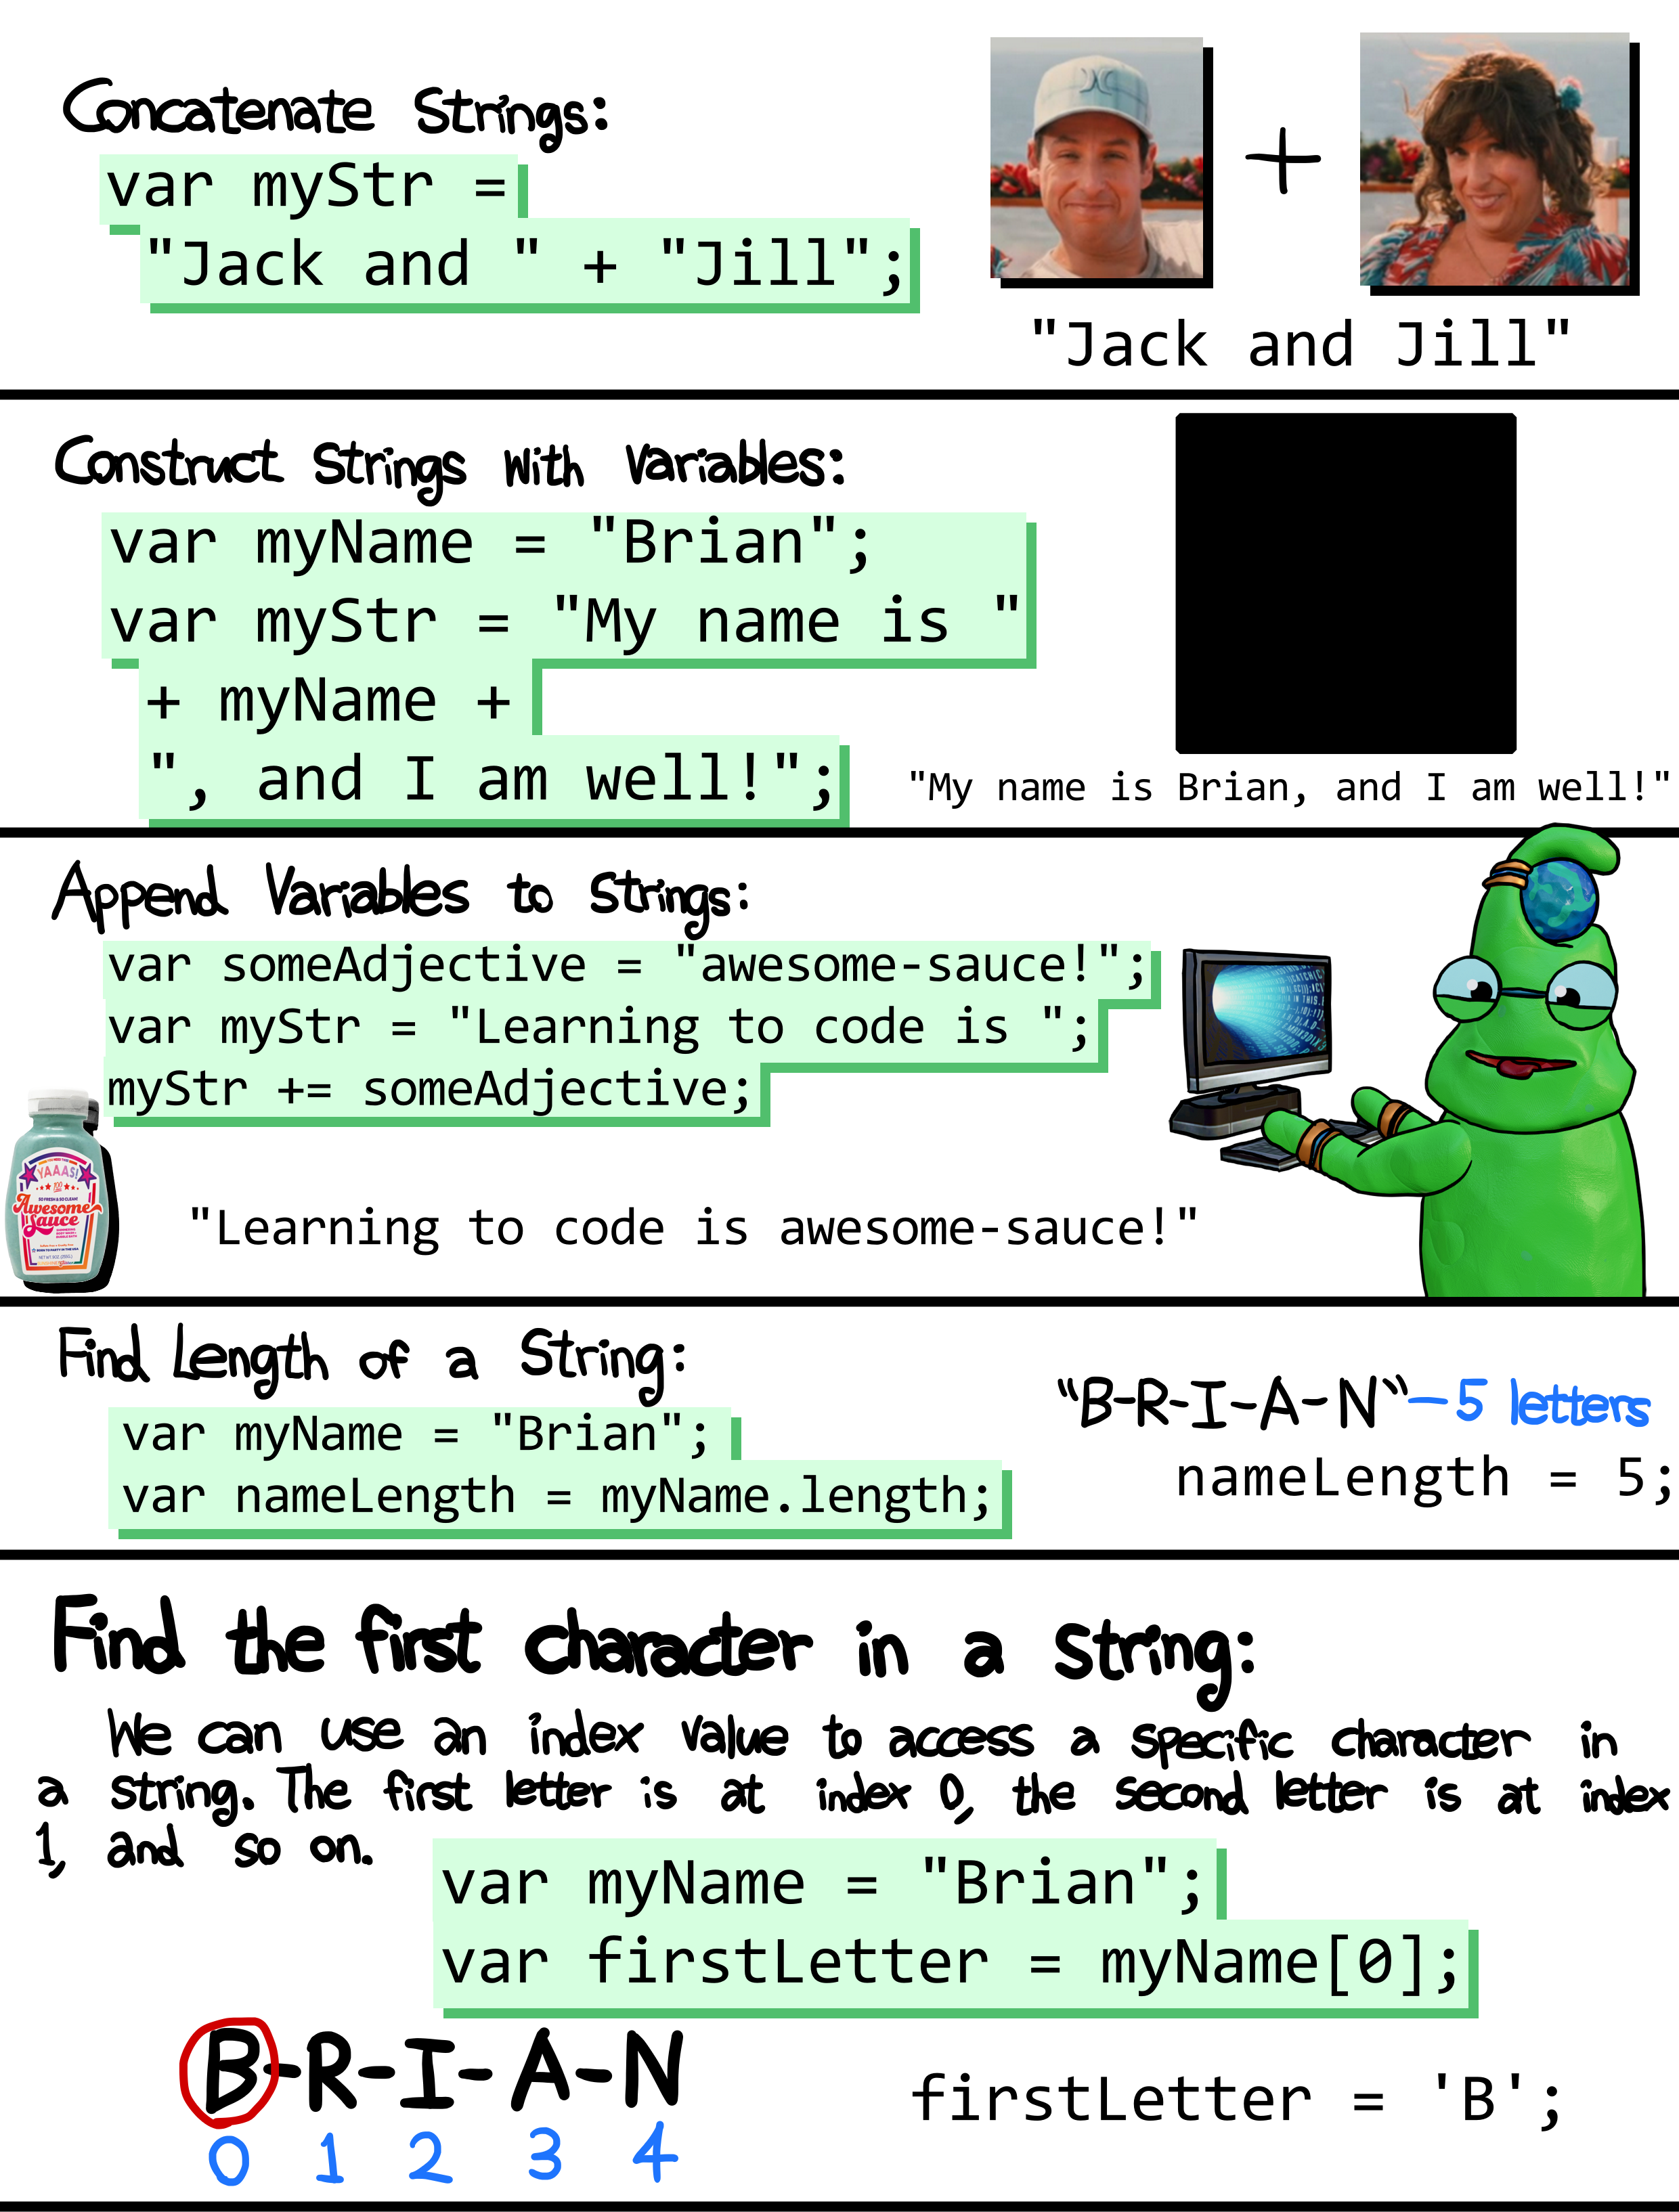 Concatenate Strings:
var myStr =
"Jack and " + "Jill";
+
"Jack and Jill"
Construct Strings With Variables:
var myName = "Brian";
var myStr = "My name is "
+ myName +
", and I am well!";
"My name is Brian, and I am well!"
Append Variables to Strings:
var someAdjective = "awesome-sauce!";
var myStr = "Learning to code is ";
myStr += someAdjective;
YAAAS!
Awesome
Sauce
"Learning to code is awesome-sauce!"
Find Length of a String:
var myName = "Brian";
var nameLength = myName.length;
"B-R-I-A-N"-5 letters
nameLength = 5;
Find the first character in a string:
We can use an index value to access a specific character in
a string. The first letter is at index 0, the second letter is at index
1, and so on.
var myName = "Brian";
var firstLetter = myName[0];
B-R-I-A-N
0 1 2 3 4
firstLetter = 'B';